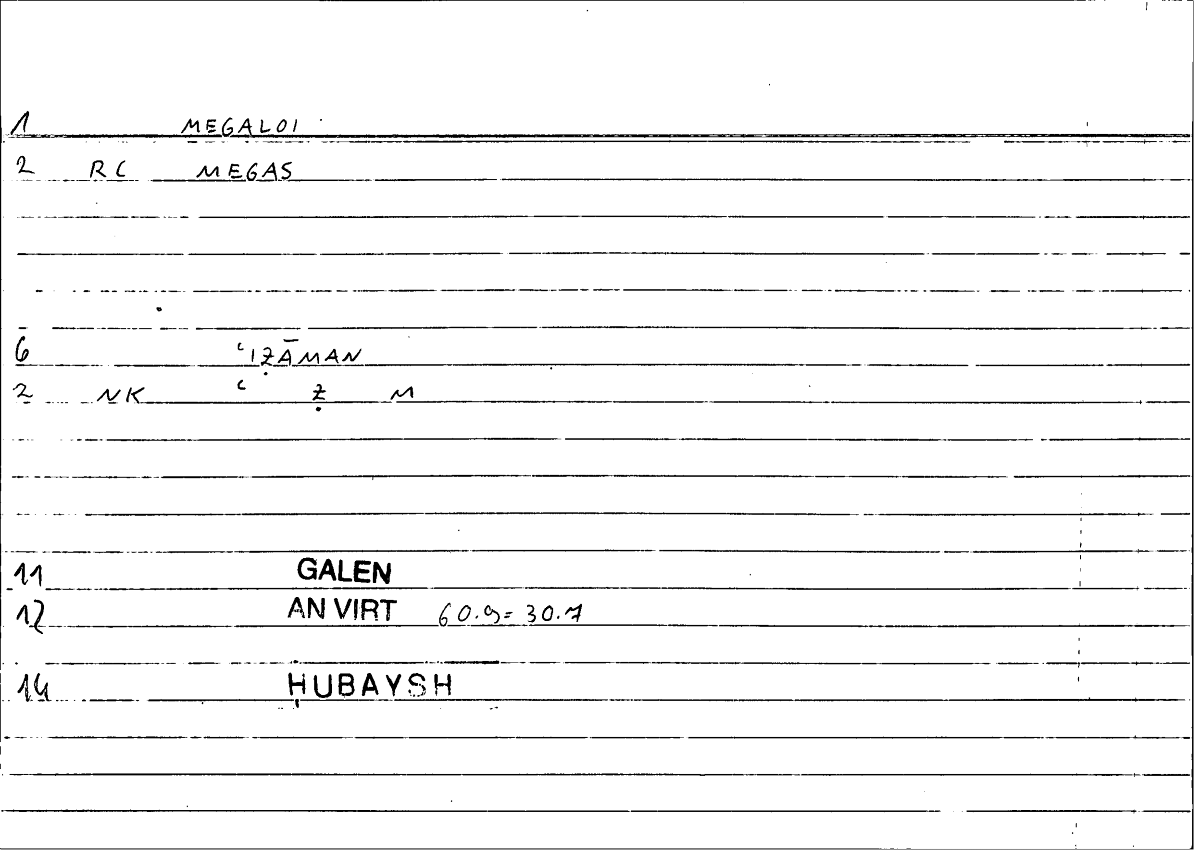 1 MEGALOI
2 RC MEGAS
6 ʿIẒĀMAN
2 NK ʿ Ẓ M
11 GALEN
12 AN VIRT 60.9=30.7
14 ḤUBAYSH